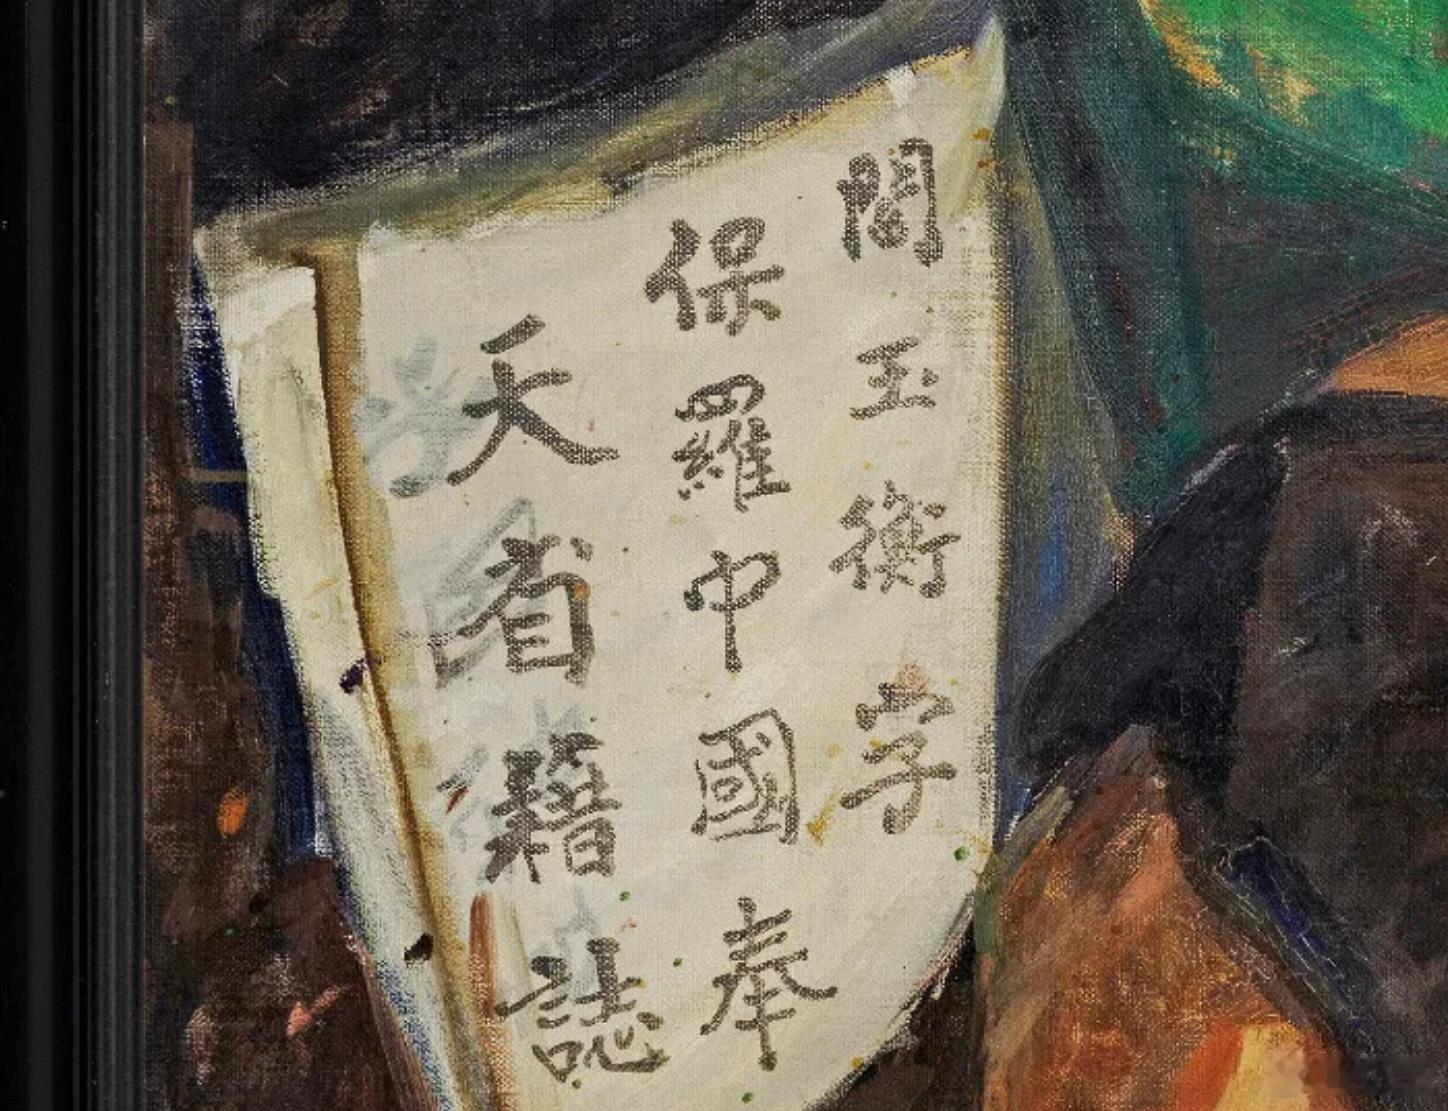 閻玉衡字
保羅中國奉
天省籍誌